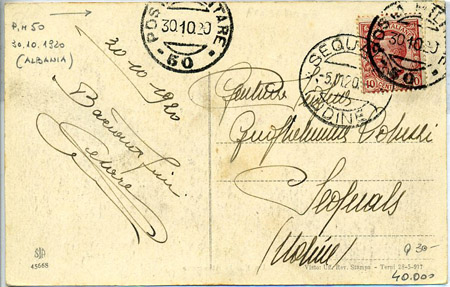 P.M 50
30.10.1920
(ALBANIA)
POSTA MILITARE
30.10.20
50
POSTA MILITARE
30.10.20
50
SEQUALS
5.11.20
UDINE
10
30 10 1920
Gentile
Guglielmina
Sequals
(Udine)
45668
Visto: Uff. Rev. Stampa - Terni 28-5-917
Q 30-
40.000